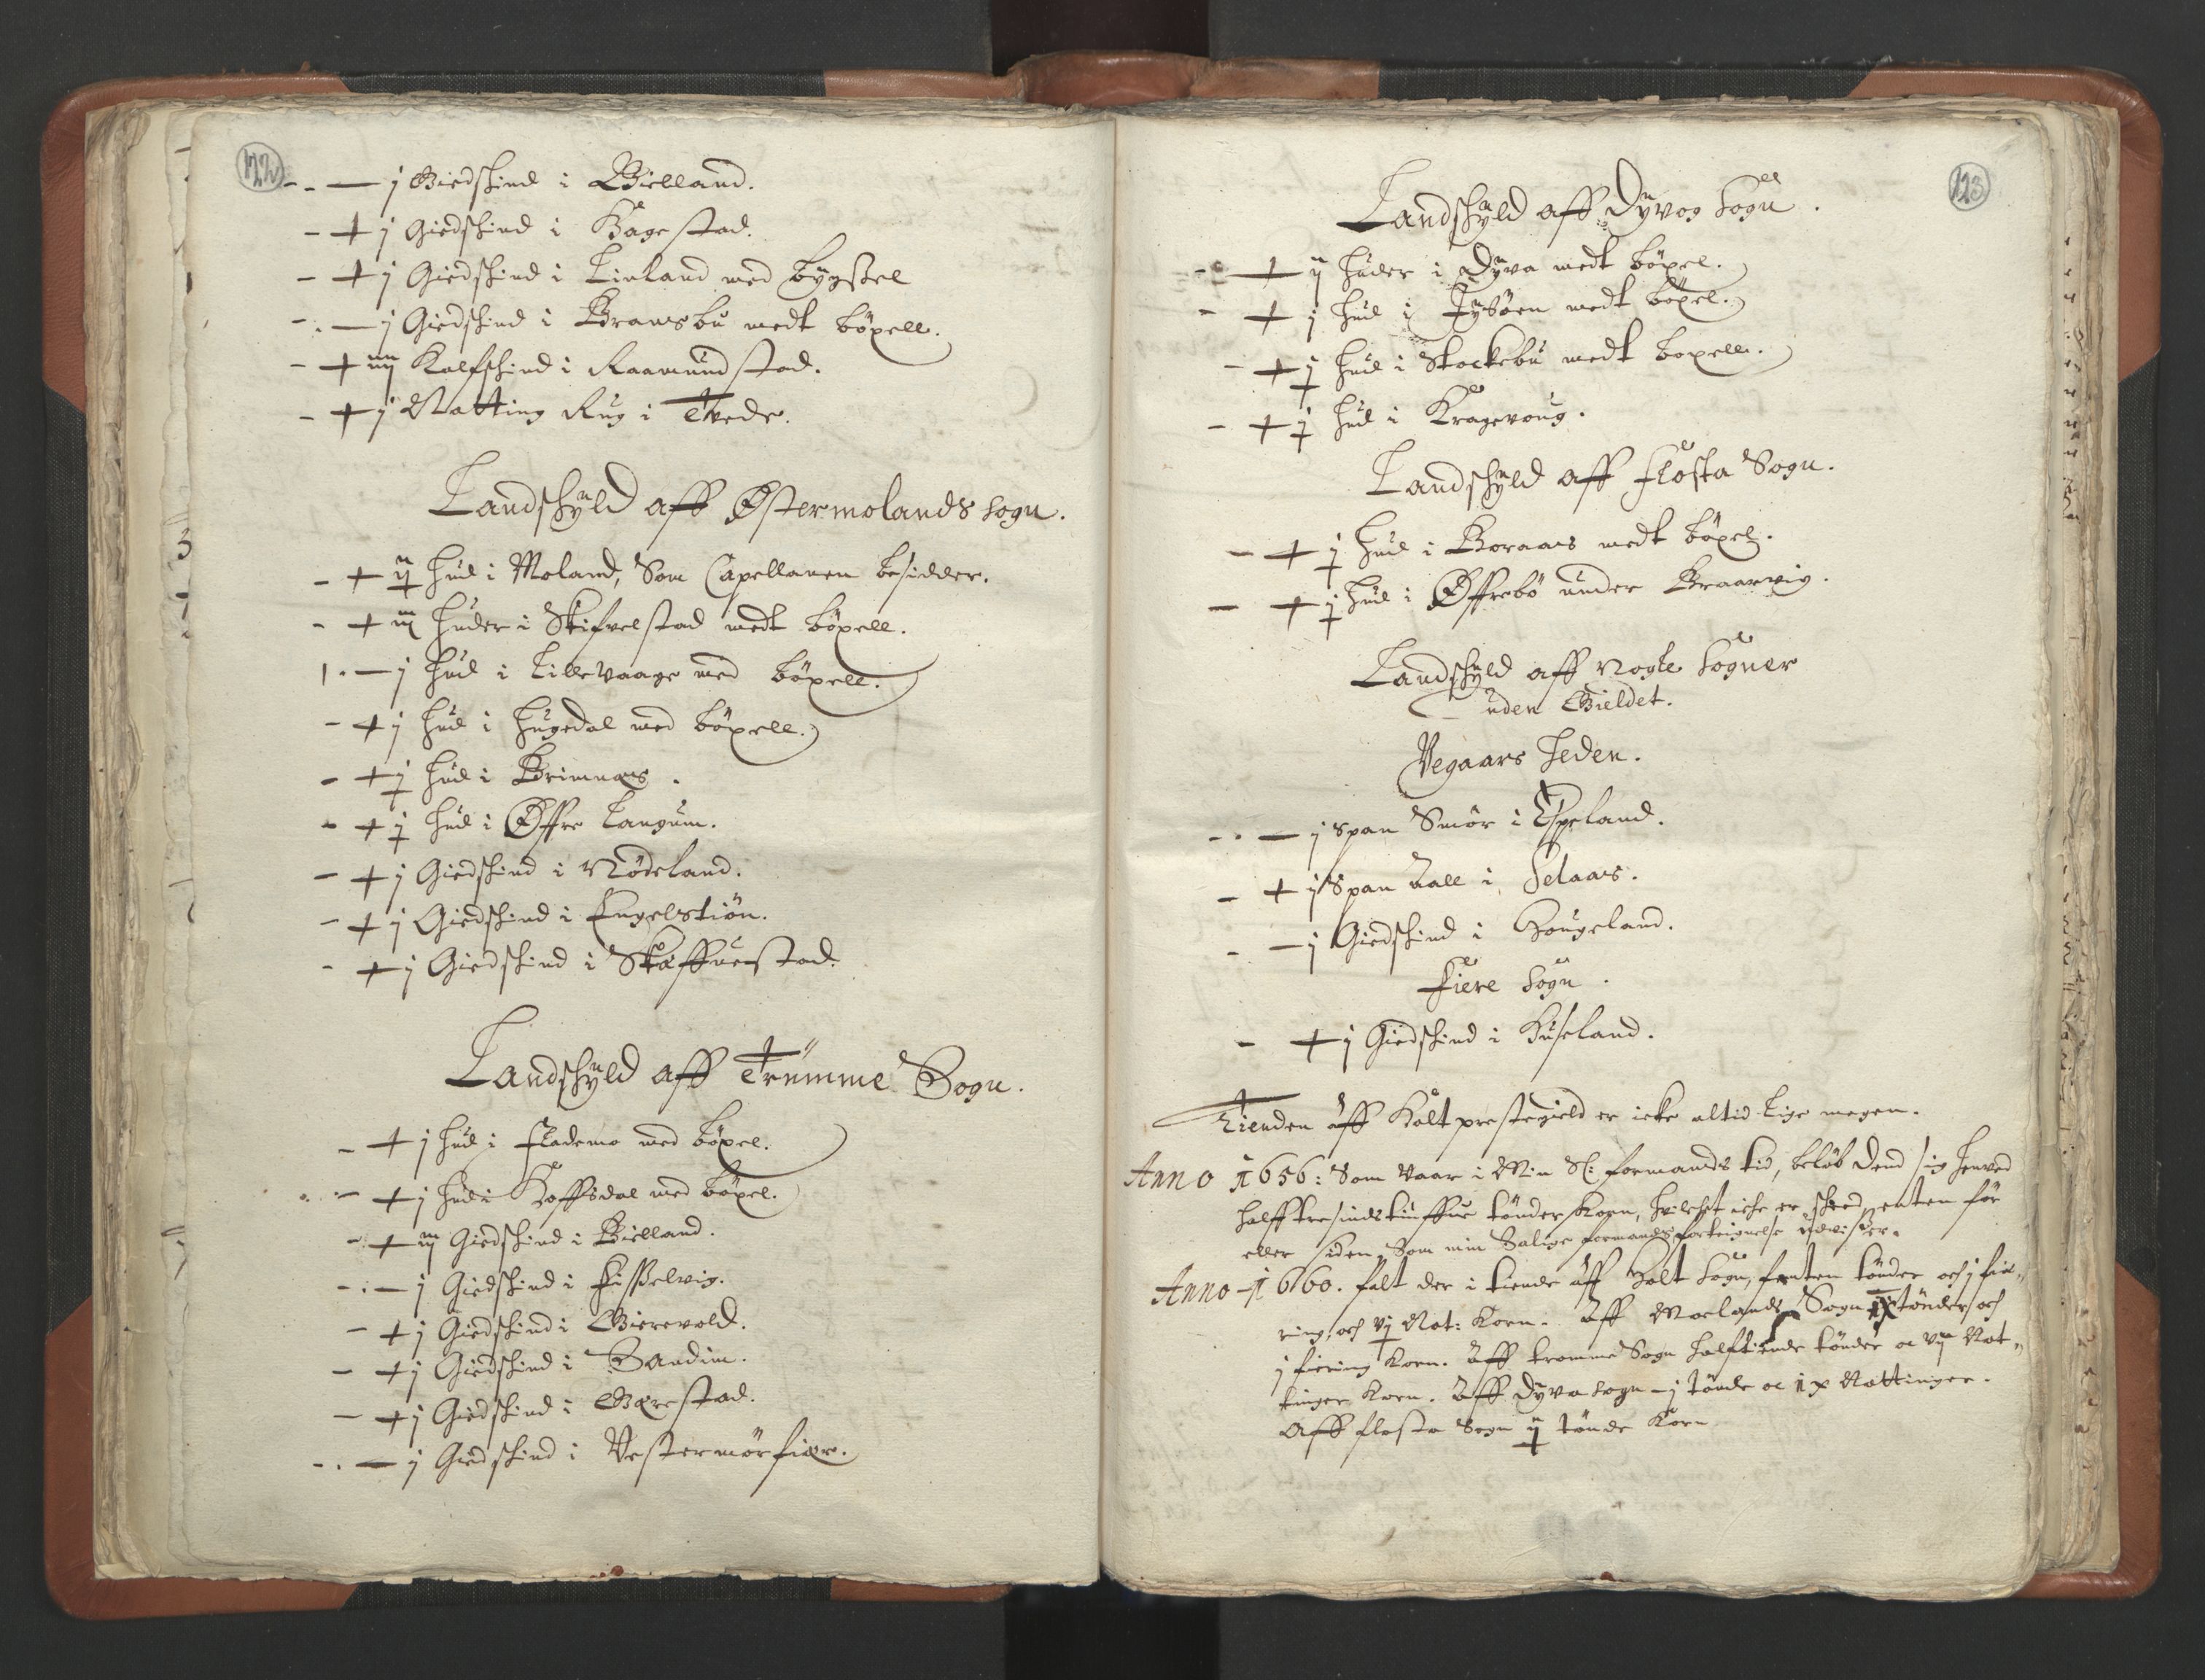 122
j Giedskind i Bielland.
j Giedskind i Hagestad.
j Giedskind i Linland med bygsel
j Giedskind i Bransbu medt böxell.
iiij Kalfschind i Raamundstad.
j Natting Rug i Tvede.
Landschyld aff Østermolands sogn.
ij hud i Moland, Som Capellanen besidder.
iij huder i Skifvelstad medt böxell.
j hud i Lillevaage med böxell.
j hud i Hugedal med böxell.
j hud i Brimnæs.
j hud i Øffre Langum.
j Giedskind i Nödeland.
j Giedskind i Engelstiön.
j Giedskind i Skaffuestad.
Landschyld aff Trümme Sogn.
j hud i Flademo med böxel.
j hud i Koffsdal med böxel.
iij Giedskind i Bielland.
j Giedskind i Fisselvig.
j Giedskind i Gierevold.
j Giedskind i Sandim.
j Giedskind i Gærestad.
j Giedskind i Vestermörfiær.
123
Landschyld aff Dyvog sogn.
ij huder i Dyva medt böxel.
j hud i Tysöen medt böxel.
j hud i Stockebu medt boxell.
j hud i Kragevoug.
Landschyld aff Flosta Sogn.
j hud i Boraas medt böxel.
j hud i Øffrebö under Braarvig.
Landschyld aff Nogle Sogner
uden Gieldet.
Vegaars Heden.
j span Smör i Espeland.
j Span Aall i Selaas.
j Giedskind i Hougeland.
Fiere sogn.
j Giedskind i Huseland.
Tienden aff Holt prestegield er icke altid lige megen.
Anno 1656: Som vaar i Min Sl: formands tid, beløb dend sig henved
halfftresindstiuffue tönder Korn, huilchet iche er skeed enten før
eller siden, Som min Salige formands forteignelse udviser.
Anno 1660. falt der i tiende aff Holt sogn, femten tönder och j fie„
ring, och vj Nat: Korn. Aff Moelands Sogn ix tönder och
j fiering Korn. Aff Tromme Sogn halftiende tönder oc vij Nat„
tinger Korn. Aff Dyva sogn j tönde oc ix Nattinger.
Aff flosta Sogn ij tönde Korn